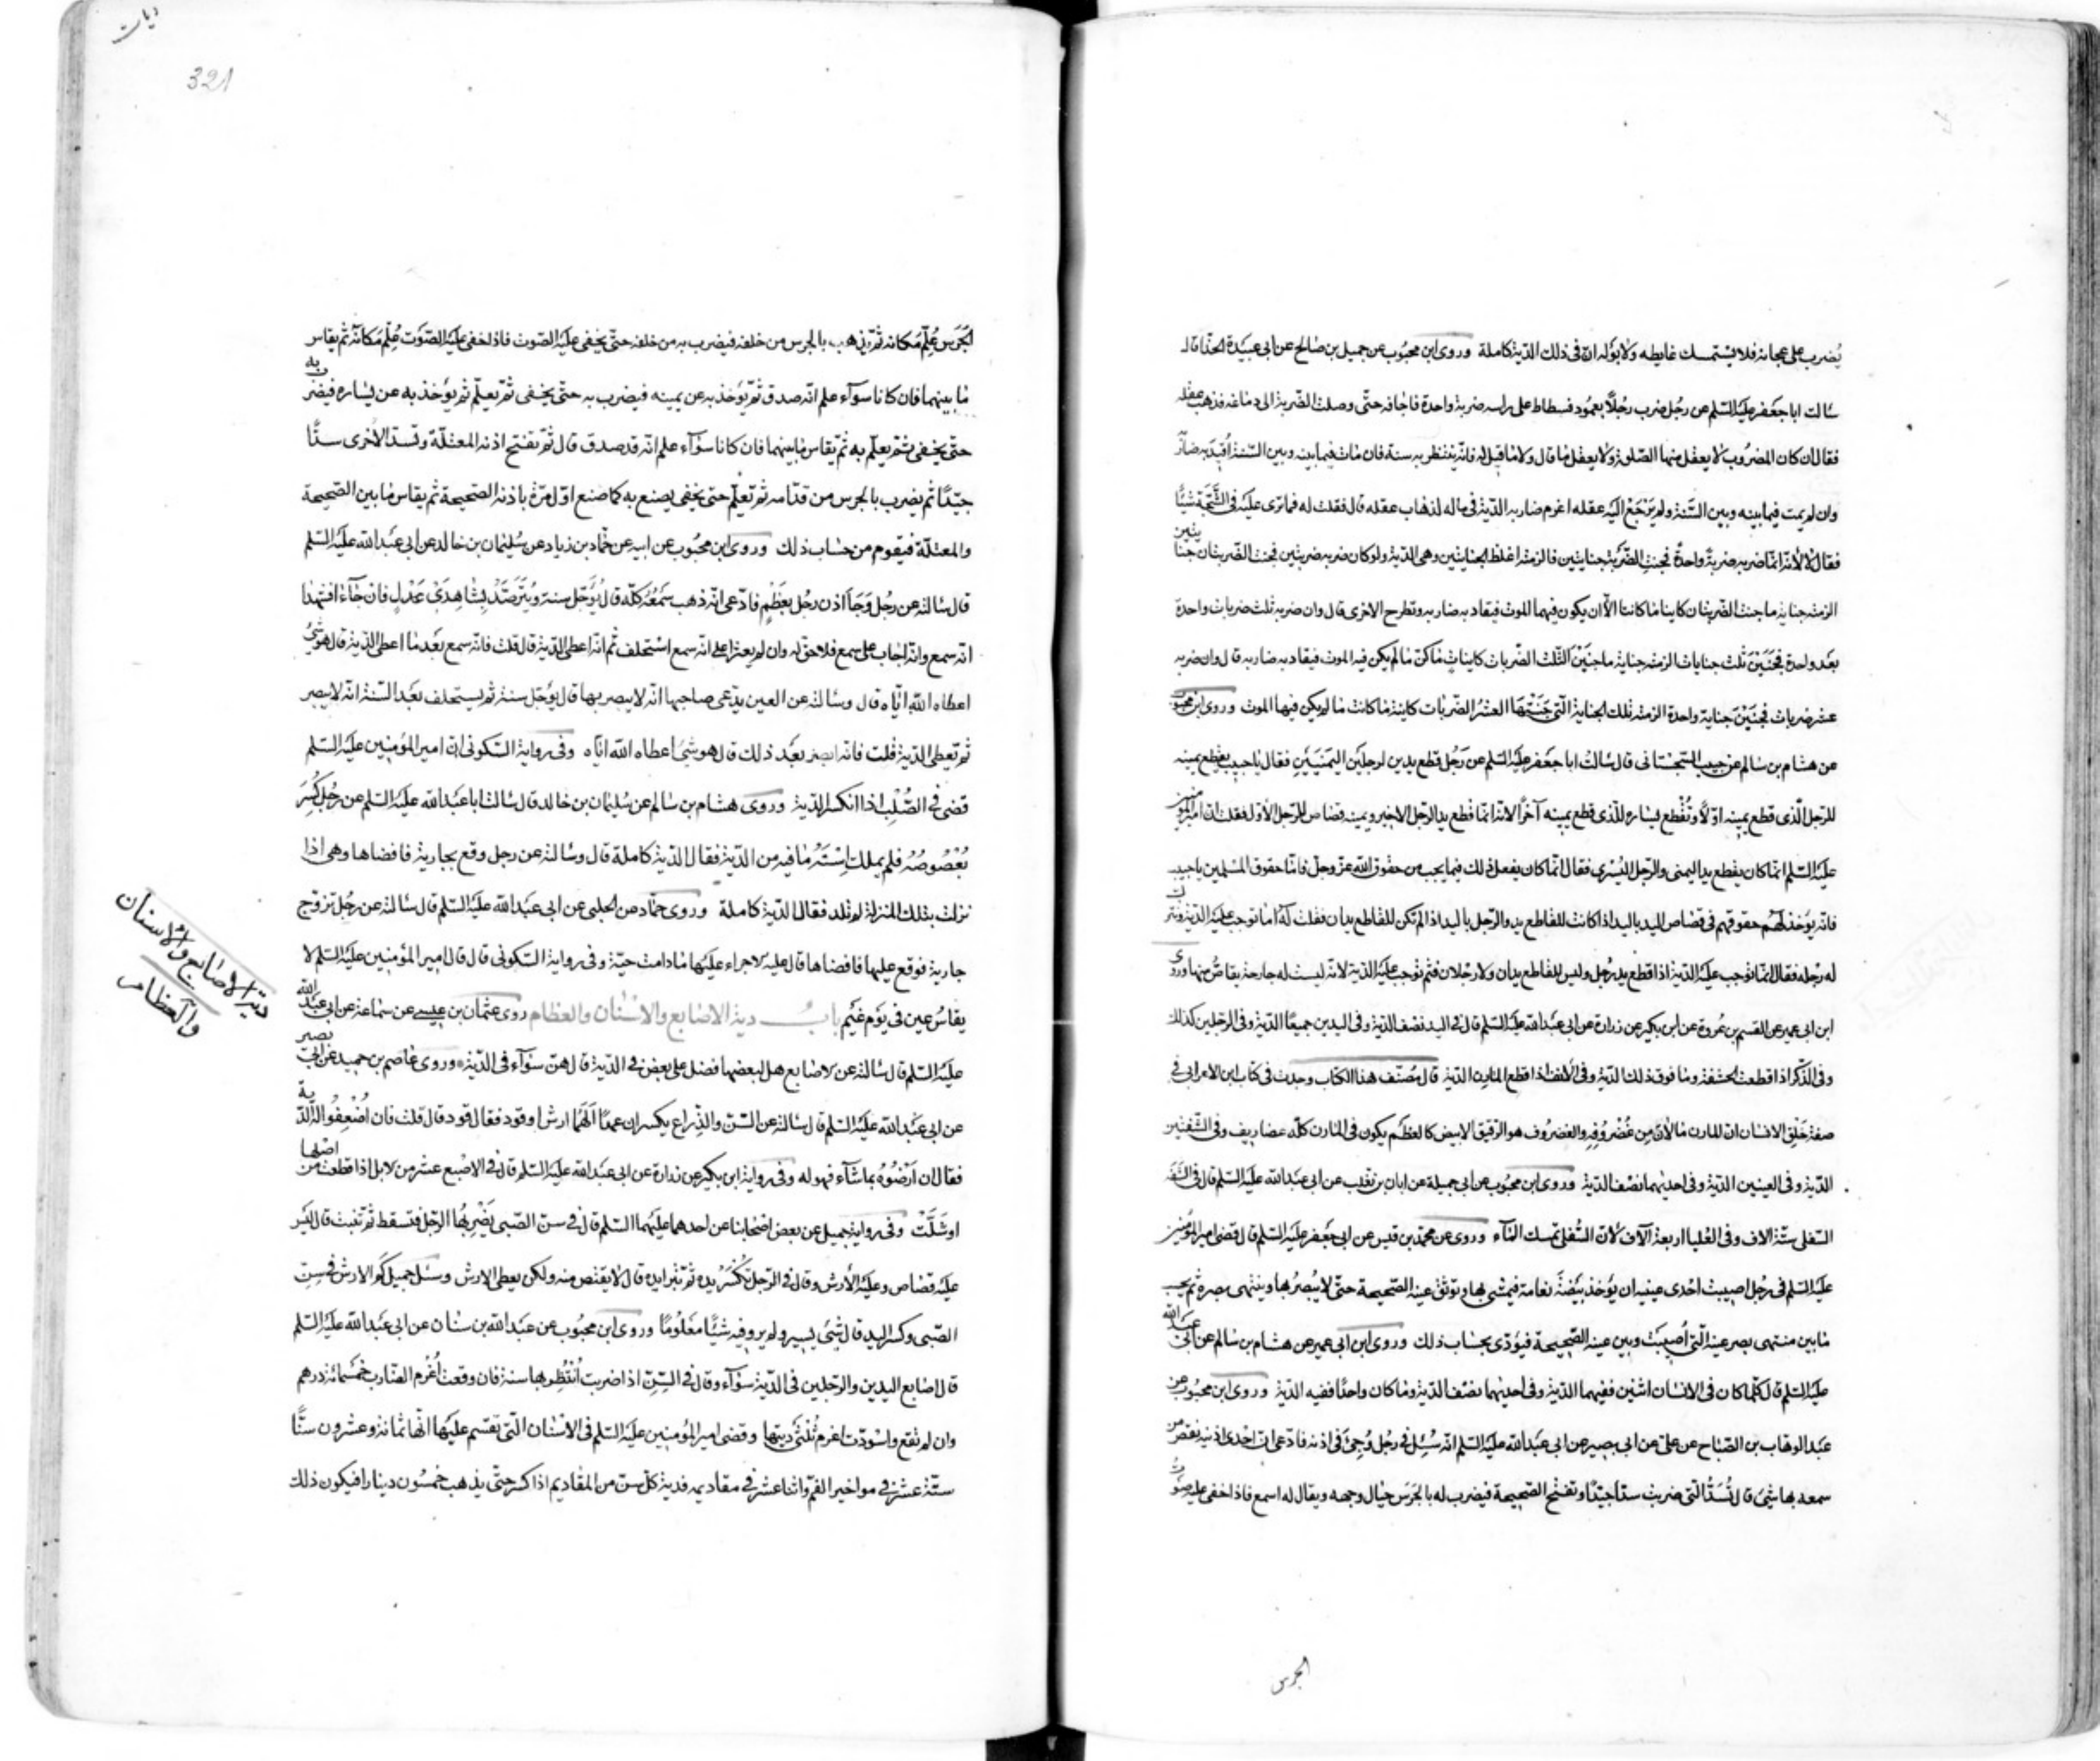 يُضرب على عجانه فلا يستمسك غايطه ولا بوله ان فى ذلك الدّية كاملة وروى ابن محبوب عن جميل بن صالح عن ابى عبيدة الحذّا قال
سالت ابا جعفر عليه السّلم عن رجل ضرب رجلًا بعمود فسطاط على راسه ضربة واحدة فاجافه حتّى وصلت الضّربة الى دماغه فذهب عقله
فقال ان كان المضروب لا يعقل منها الصّلوة ولا يعقل ما قال ولا ما قيل له فانّه ينتظر به سنة فان مات فيما بينه وبين السّنة اُقيد به ضاربه
وان لم يمت فيما بينه وبين السّنة ولم يَرْجَعْ اليه عقله اغرم ضاربه الدّية فى ماله لذهاب عقله قال فقلت له فما ترى عليه فى الشّجّة شيئًا
فقال لا لأنّه انّما ضربه ضربةً واحدةً فجنت الضّربة جنايتين فالزمته اغلظ الجنايتين وهى الدّية ولو كان ضربه ضربتين فجنت الضّربتان جنايتين
الزمته جناية ما جنت الضّربتان كاينا ما كانتا الّا ان يكون فيهما الموت فيقاد به ضاربه وتطرح الاخرى قال وان ضربه ثلث ضربات واحدة
بعد واحدة فجَنَيْنَ ثلث جنايات الزمته جناية ما جنَيْنَ الثّلث الضّربات كاينات ما كنّ ما لم يكن فيه الموت فيقاد به ضاربه قال وان ضربه
عشر ضربات فجنَيْنَ جناية واحدة الزمته تلك الجناية الّتى جَنَتْهَا العشرُ الضّربات كاينة ما كانت ما لم يكن فيها الموت وروى ابن محبوب
عن هشام بن سالم عن حبيب السّجستانى قال سالت ابا جعفر عليه السّلم عن رجُل قطع يدين لرجلين اليمنيين فقال يا حبيب يقطع يمينه
للرّجل الّذى قطع يمينه اوّلًا وتُقْطع يساره للّذى قطع يمينه آخرًا لانّه انّما قطع يد الرّجل الاخير ويمينه قصاص للرّجل الاوّل فقلت ان امير المؤمنين
عليه السّلم انّما كان يقطع يد اليمنى والرّجل اليُسرى فقال انّما كان يفعل ذلك فيما يجب من حقوق الله عزّ وجلّ فامّا حقوق المسلمين يا حبيب
فانّه يؤخذ لهم حقوقهم فى قصاص اليد باليد اذا كانت للقاطع يد والرّجل باليد اذا لم تكن للقاطع يدان فقلت له اما توجب عليه الدّية وتترك
له رجله فقال انّما توجب عليه الدّية اذا قطع يد رجُل وليس للقاطع يدان ولا رجلان فثم توجب عليه الدّية لانّه ليست له جارحة يقاصّ منها وروى
ابن ابى عمير عن القسم بن عُروة عن ابن بكير عن زرارة عن ابى عبد الله عليه السّلم قال فى اليد نصف الدّية وفى اليدين جميعًا الدّية وفى الرجلين كذلك
وفى الذّكر اذا قطعت الحشفة وما فوق ذلك الدّية وفى الأنف اذا قطع المارن الدّية قال مُصنّف هذا الكتاب وجدت فى كتاب ابن الاعرابى فى
صفة خَلْق الانسان ان المارن ما لانَ مِن غُضْرُوفِه والغضروف هو الرّقيق الابيض كالعظم يكون فى المارن كلّه غضاريف وفى الشّفتين
الدّية وفى العينين الدّية وفى احديهما نصف الدّية وروى ابن محبوب عن ابى جميلة عن ابان بن تغلب عن ابى عبد الله عليه السّلم قال فى الشّفة
السّفلى ستّة الاف وفى العُليا اربعة آلاف لانّ السُّفلى تمسك المآء وروى عن محمّد بن قيس عن ابى جعفر عليه السّلم قال قضى امير المؤمنين
عليه السّلم فى رجُل اصيبت احدى عينيه ان يؤخذ بيضةُ نعامة فيمشى بها وتوثق عينه الصّحيحة حتّى لا يُبصرُها وينتهى بصره ثم يحسب
ما بين منتهى بصر عينه الّتى اُصيبَتْ وبين عينه الصّحيحة فيؤدّى بحساب ذلك وروى ابن ابى عمير عن هشام بن سالم عن ابى عبد الله
عليه السّلم قال كلّما كان فى الانسان اثنين ففيهما الدّية وفى احديهما نصف الدّية وما كان واحدًا ففيه الدّية وروى ابن محبوب عن
عبد الوهاب بن الصّباح عن علىّ عن ابى بصير عن ابى عبد الله عليه السّلم انّه سُئِل فى رجُل وُجِئ فى اذنه فادّعى ان احدى اذنيه نقص من
سمعه بها شئ قال تُسَدُّ الّتى ضربت سدًّا جيّدًا وتفتح الصّحيحة فيضرب له بالجَرَس حيال وجهه ويقال له اسمع فاذا خفى عليه صوت
الجرس
ديات
321
الجَرَس عُلِّم مَكانه ثمّ يذهب بالجرس من خلفه فيضرب به من خلفه حتّى يخفى عليه الصّوت فاذا خفى عليه الصّوت عُلّم مَكانه ثم يقاس
ما بينهما فان كانا سوآء علم انّه صدق ثمّ يؤخذ به عن يمينه فيضرب به حتّى يخفى ثمّ يعلّم ثم يؤخذ به عن يساره فيضرب به
حتّى يخفى ثم يعلّم به ثم يقاس ما بينهما فان كانا سوآء علم انّه قد صدق قال ثمّ تفتح اذنه المعتلّة وتسدّ الأخرى سدًّا
جيّدًا ثم يضرب بالجرس من قدّامه ثم تعلّم حتى يخفى يصنع به كما صنع اوّل مرّة باذنه الصّحيحة ثم يقاس ما بين الصّحيحة
والمعتلّة فيقوم من حساب ذلك وروى ابن محبوب عن ابيه عن حمّاد بن زياد عن سُليمان بن خالد عن ابى عبد الله عليه السّلم
قال سالته عن رجُل وَجَأ اذن رجُل بعَظْمٍ فادّعى انّه ذهب سَمْعُهُ كلّه قال يُؤجّل سنة ويُتَرَصّدُ بِشاهِدَىْ عَدْلٍ فان جَآءا فشهدا
انّه سمع وانّه اجاب على سمع فلا حق له وان لم يعثر على انّه سمع استحلف ثم انّه اعطى الدّية قال قلت فانّه سمع بعد ما اعطى الدّية قال هو شئ
اعطاه الله ايّاه قال وسالته عن العين يدّعى صاحبها انّه لا يبصر بها قال يؤجّل سنة ثم يستحلف بعد السّنة انّه لا يبصر
ثم تعطى الدّية قلت فانّه ابصر بعد ذلك قال هو شئ اعطاه الله ايّاه وفى رواية السّكونى ان امير المؤمنين عليه السّلم
قضى فى الصُّلْب اذا انكسر الدّية وروى هشام بن سالم عن سُليمان بن خالد قال سالت ابا عبد الله عليه السّلم عن رجُل كُسِرَ
بُعْصُوصُهُ فلم يملك اِسْتَهُ ما فيه من الدّية فقال الدّية كاملة قال وسالته عن رجل وقع بجارية فافضاها وهى اذا
نزلت بتلك المنزلة لم تلد فقال الدّية كاملة وروى حمّاد عن الحلبى عن ابى عبد الله عليه السّلم قال سالته عن رجُل تزوّج
جارية فوقع عليها فافضاها قال عليه الاجراء عليها ما دامت حيّة وفى رواية السّكونى قال قال امير المؤمنين عليه السّلم لا
يقاسُ عين فى يَوْم غَيْم باب دية الاصابع والاسنان والعظام روى عثمان بن عيسى عن سماعة عن ابى عبد الله
عليه السّلم قال سالته عن الاصابع هل لبعضها فضل على بعض فى الدّية قال هنّ سوآء فى الدّية وروى عاصم بن حميد عن ابى بصير
عن ابى عبد الله عليه السّلم قال سالته عن السّنّ والذّراع يكسران عمدًا اَلَهُما ارش او قود فقال قود قال قلت فان اُضْعِفُوا له الدّية
فقال ان اَرْضُوهُ بما شآء فهو له وفى رواية ابن بكير عن زرارة عن ابى عبد الله عليه السّلم قال فى الاصبع عشر من الابل اذا قطعت من اصلها
او شَلَّتْ وفى رواية جميل عن بعض اصحابنا عن احدهما عليهما السّلم قال فى سنّ الصّبى يَضْرِبُها الرّجل فتسقط ثمّ تنبت قال ليس
عليه قصاص وعليه الأرش وقال فى الرّجل تُكْسَرُ يده ثمّ تبرا يده قال لا يقتصّ منه ولكن يعطى الارش وسئل جميل كم الارش فى سنّ
الصّبى وكسر اليد قال شئ يسير ولم يرو فيه شيئًا مَعْلُومًا وروى ابن محبوب عن عبد الله بن سنان عن ابى عبد الله عليه السّلم
قال اصابع اليدين والرّجلين فى الدّية سوآء وقال فى السّنّ اذا ضربت اُنْتُظِر بها سنة فان وقعت اُغْرِم الضّارب خمسمائة درهم
وان لم تقع واسودّت اغرم ثُلُثَىْ ديتها وقضى امير المؤمنين عليه السّلم فى الاسنان الّتى تقسم عليها انّها ثمانة وعشرون سنًّا
ستّة عشر فى مواخير الفم واثنا عشر فى مقاديمه فدية كلّ سنّ من المقاديم اذا كسر حتّى يذهب خمسُون دينارا فيكون ذلك
دية الاصابع والاسنان
والعظام